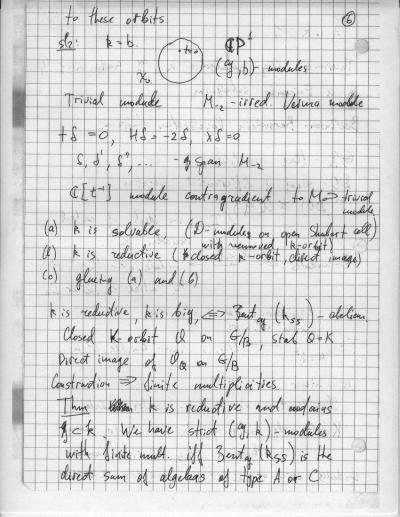 to these orbits.
⑥
sl₂: k = b.
CP¹
X₀
(g, b) - modules
Trivial module M₋₂ - irred. Verma module
tδ = 0, Hδ = -2δ, xδ = 0
δ, δ', δ'', ... - span M₋₂
C[t⁻¹] module contragradient to M₀ ⊃ trivial module
(a) k is solvable (D-modules on open Shubert cell)
with removed k-orbit)
(b) k is reductive (closed k-orbit, direct image)
(c) glueing (a) and (b)
k is reductive, k is big, ⇔ Zent_g (k_ss) - abelian.
Closed K-orbit Q on G/B, stab Q = K
Direct image of O_Q on G/B
Construction ⇒ finite multiplicities
Thm k is reductive and contains
h ⊂ k. We have strict (g, k) - modules
with finite mult. iff Zent_g (k_ss) is the
direct sum of algebras of type A or C